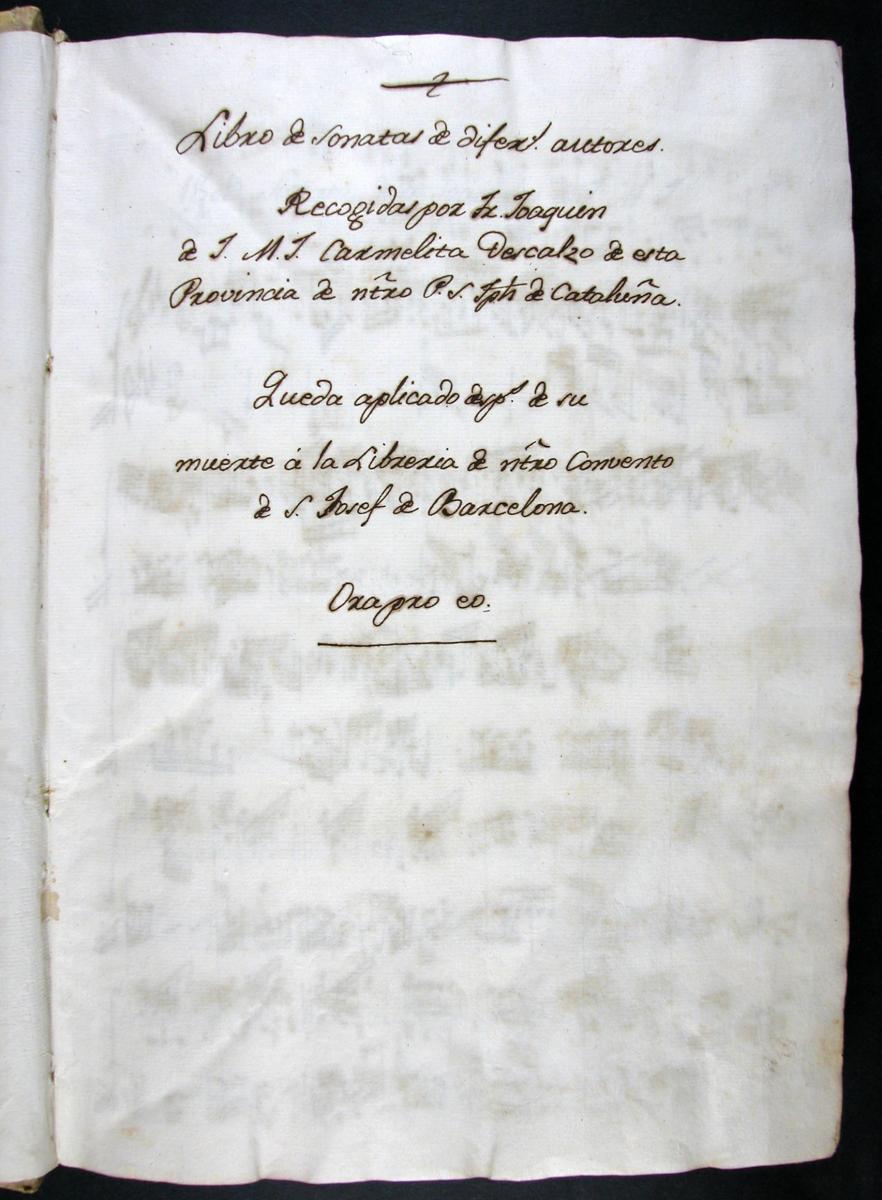 Libro de Sonatas de diferˢ. autores.
Recogidas por Fr. Joaquin
de J. M. J. Carmelita Descalzo de esta
Provincia de ñtro P. S. Jph de Cataluña.
Queda aplicado despˢ. de su
muerte á la Libreria de ñtro Convento
de S. Josef de Barcelona.
Ora pro eo.